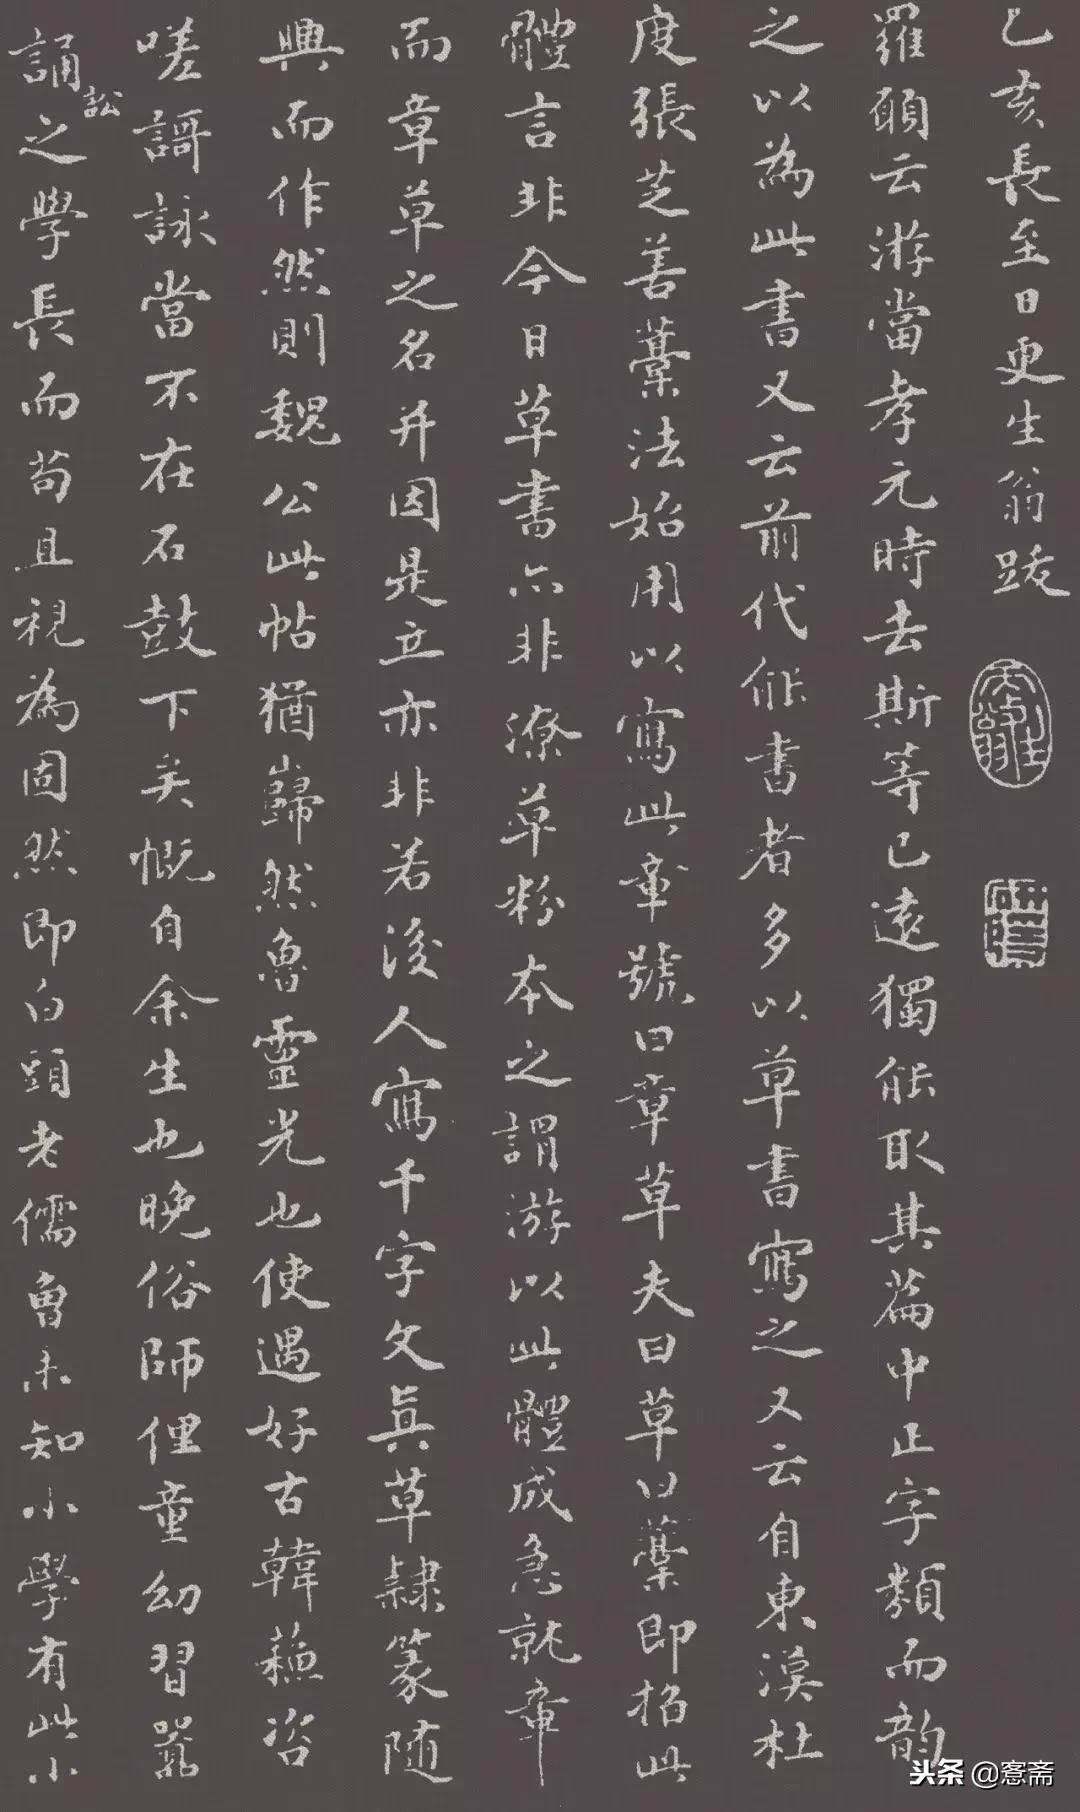 己亥長至日更生翁跋
羅願云游當孝元時去斯等已遠獨能取其篇中正字類而韵
之以為此書又云前代能書者多以草書寫之又云自東漢杜
度張芝善藁法始用以寫此章號曰章草夫曰草曰藁即招此
體言非今日草書亦非潦草粉本之謂游以此體成急就章
而章草之名并因是立亦非若後人寫千字文真草隸篆随
興而作然則魏公此帖猶巋然魯靈光也使遇好古韓蘓咨
嗟謌詠當不在石鼓下矣慨自余生也晚俗師俚童幼習
誦訟之學長而苟且視為固然即白頭老儒曾未知小學有此小
头条 @窓斋